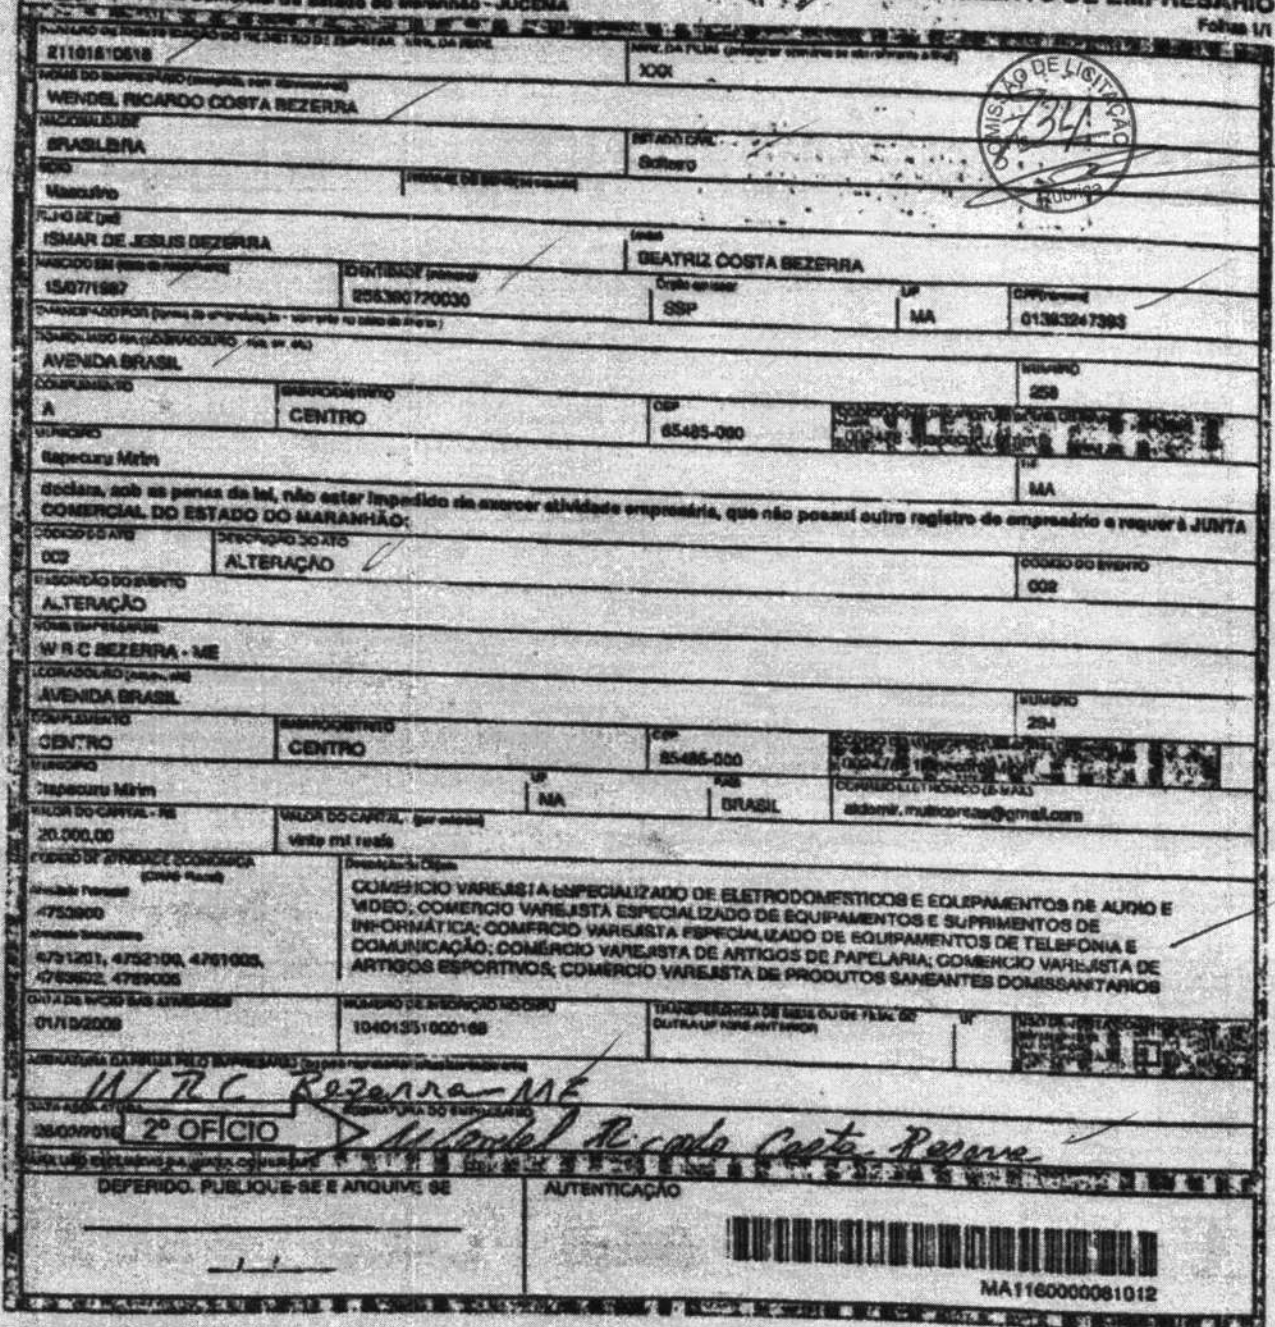 Estado do Maranhão - JUCEMA
DE EMPRESÁRIO
Folhas 1/1
XXX
NOME DO EMPRESÁRIO
WENDEL RICARDO COSTA BEZERRA
NACIONALIDADE
BRASILEIRA
ESTADO CIVIL
Solteiro
COMISSÃO DE LICITAÇÃO
Rubrica
SEXO
Masculino
FILHO DE (pai)
ISMAR DE JESUS BEZERRA
(mãe)
BEATRIZ COSTA BEZERRA
IDENTIDADE (número)
Órgão emissor
SSP
UF
MA
CPF (número)
01393247393
AVENIDA BRASIL
NÚMERO
258
COMPLEMENTO
A
BAIRRO/DISTRITO
CENTRO
CEP
65485-000
MUNICÍPIO
Itapecuru Mirim
UF
MA
declara, sob as penas da lei, não estar impedido de exercer atividade empresária, que não possui outro registro de empresário e requer à JUNTA
COMERCIAL DO ESTADO DO MARANHÃO:
CÓDIGO DO ATO
002
DESCRIÇÃO DO ATO
ALTERAÇÃO
CÓDIGO DO EVENTO
002
DESCRIÇÃO DO EVENTO
ALTERAÇÃO
NOME EMPRESARIAL
W R C BEZERRA - ME
AVENIDA BRASIL
NÚMERO
294
COMPLEMENTO
CENTRO
BAIRRO/DISTRITO
CENTRO
CEP
65485-000
MUNICÍPIO
Itapecuru Mirim
UF
MA
PAÍS
BRASIL
CORREIO ELETRÔNICO (E-MAIL)
@gmail.com
VALOR DO CAPITAL - R$
20.000,00
VALOR DO CAPITAL - (por extenso)
vinte mil reais
CÓDIGO DE ATIVIDADE ECONÔMICA
(CNAE Fiscal)
Atividade Principal
4753900
Atividade Secundária
4751201, 4752100, 4761003,
4763602, 4789005
Descrição do Objeto
COMERCIO VAREJISTA ESPECIALIZADO DE ELETRODOMESTICOS E EQUIPAMENTOS DE AUDIO E
VIDEO; COMERCIO VAREJISTA ESPECIALIZADO DE EQUIPAMENTOS E SUPRIMENTOS DE
INFORMÁTICA; COMERCIO VAREJISTA ESPECIALIZADO DE EQUIPAMENTOS DE TELEFONIA E
COMUNICAÇÃO; COMÉRCIO VAREJISTA DE ARTIGOS DE PAPELARIA; COMERCIO VAREJISTA DE
ARTIGOS ESPORTIVOS; COMERCIO VAREJISTA DE PRODUTOS SANEANTES DOMISSANITARIOS
DATA DE INÍCIO DAS ATIVIDADES
NÚMERO DE INSCRIÇÃO NO CNPJ
10401351000168
W R C Bezerra - ME
2º OFÍCIO
ASSINATURA DO EMPRESÁRIO
Wendel Ricardo Costa Bezerra
DEFERIDO. PUBLIQUE-SE E ARQUIVE-SE
AUTENTICAÇÃO
MA1160000081012